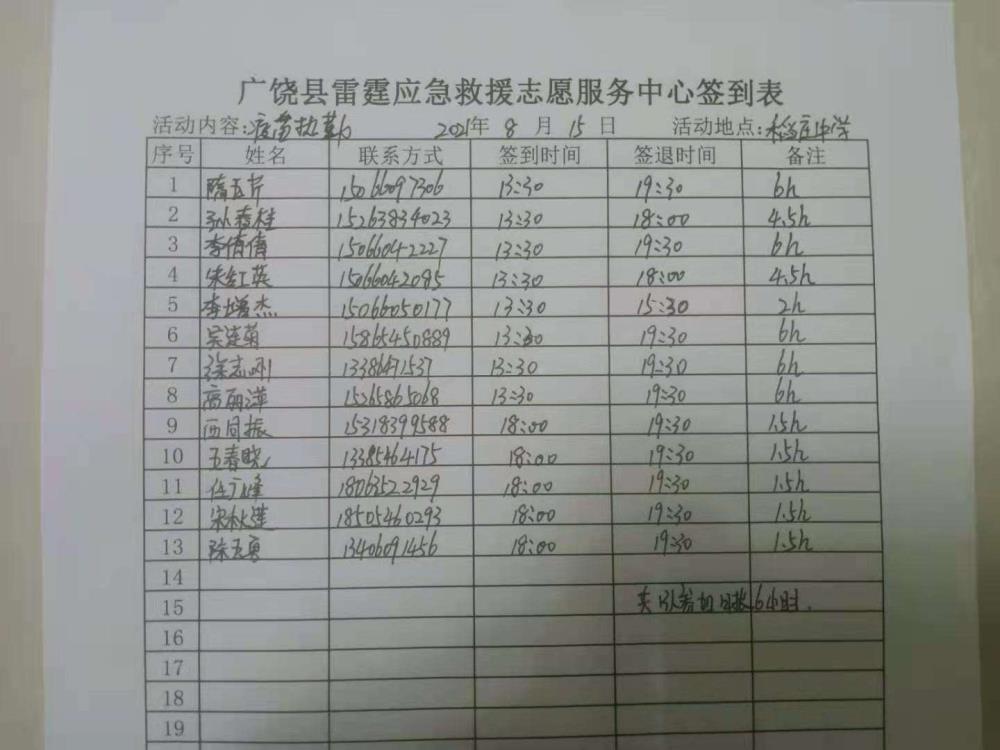 广饶县雷霆应急救援志愿服务中心签到表
活动内容:疫苗执勤 2021年 8 月 15 日 活动地点:稻庄中学
序号 姓名 联系方式 签到时间 签退时间 备注
1 隋玉芹 15066097306 13:30 19:30 6h
2 孙春桂 15263834023 13:30 18:00 4.5h
3 李倩倩 15066042227 13:30 19:30 6h
4 朱红英 15066042085 13:30 18:00 4.5h
5 李增杰 15066050177 13:30 15:30 2h
6 吴连菊 15865450889 13:30 19:30 6h
7 徐志刚 13386471537 13:30 19:30 6h
8 高丽萍 15265865068 13:30 19:30 6h
9 西同振 15318399588 18:00 19:30 1.5h
10 王春晓 13385464175 18:00 19:30 1.5h
11 任广峰 18063522929 18:00 19:30 1.5h
12 宋秋莲 18505460293 18:00 19:30 1.5h
13 陈玉勇 13406091456 18:00 19:30 1.5h
14
15 6小时.
16
17
18
19